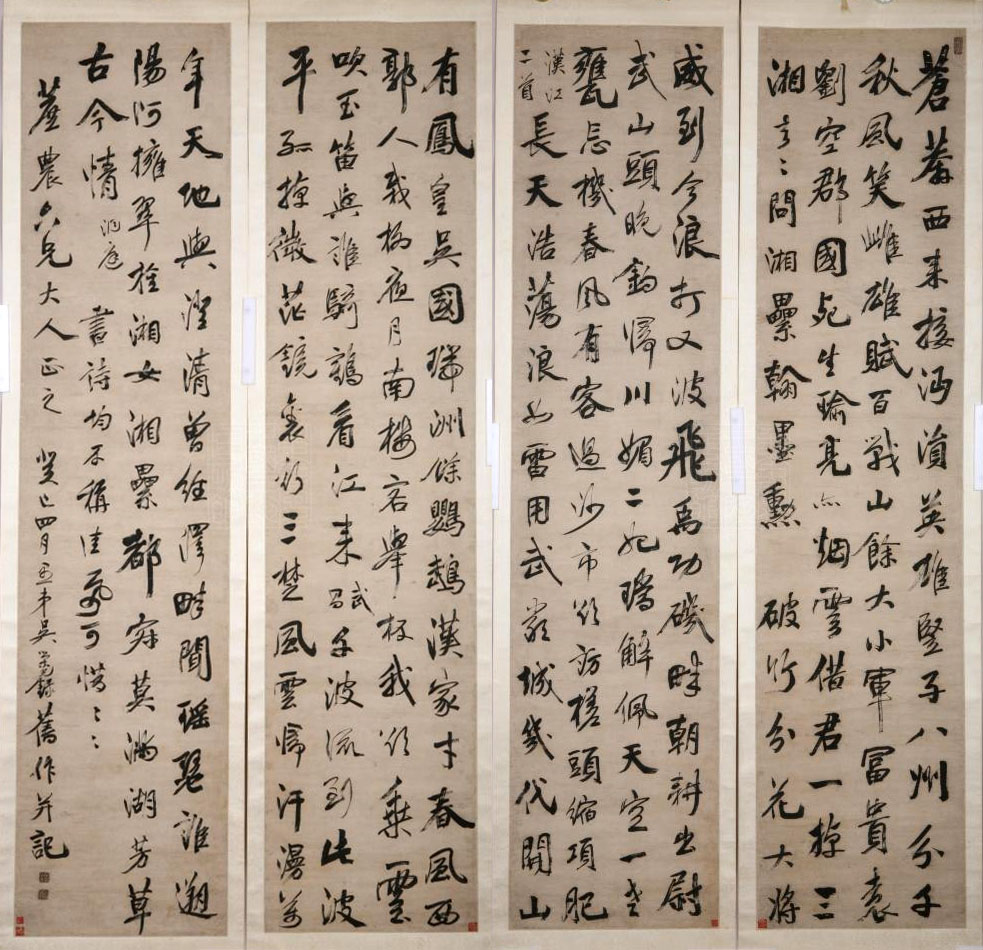 蒼莽西來接沔溳英雄豎子八州分千
秋風笑雌雄賦百戰山餘大小軍冨貴袁
劉空郡國死生瑜亮亦烟雲借君一棹三
湘去〻問湘纍翰墨勳 破竹分花大将
威到今浪打又波飛禹功磯畔朝耕出尉
武山頭晚釣歸川媚二妃璚解佩天空一老
甕忘機春風有客過沙市欲訪槎頭縮項肥
漢江二首 長天浩蕩浪如雷用武嚴城幾代開山
有鳳皇吳國瑞洲餘鸚鵡漢家才春風西
郭人栽柳夜月南樓客舉杯我欲乘雲
吹玉笛與誰騎鶴看江来武昌 千波流到此波
平孤棹微茫鏡裏行三楚風雲歸汗漫萬
年天地與澄清曾經澤畔聞瑶瑟誰遡
陽河擁翠旌湘女湘纍都寂莫滿湖芳草
古今情洞庭 書詩均不稱佳紙可惜〻〻
蘆農六兄大人正之 癸巳四月愚弟吳錄舊作并記